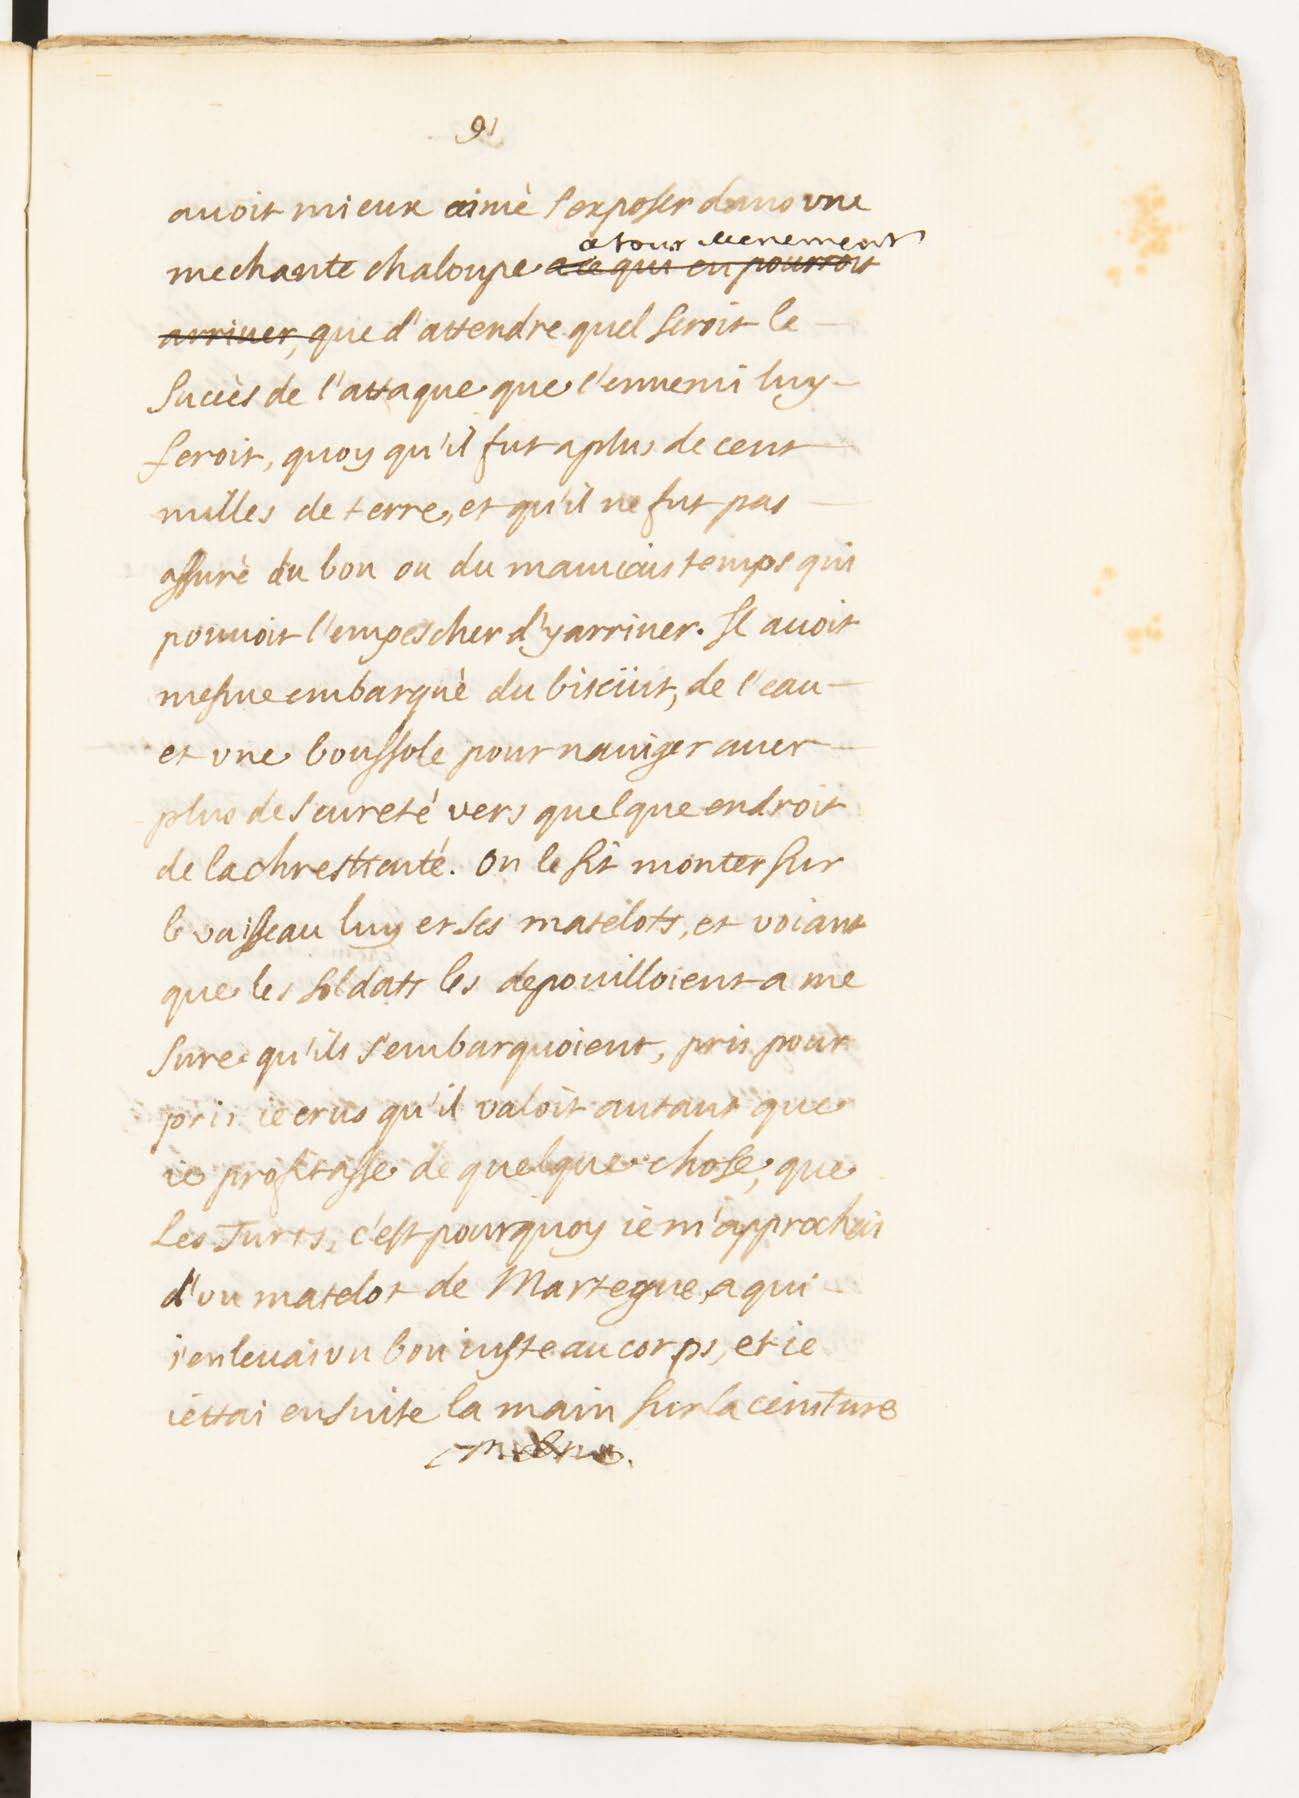 91
auoit mieux aimè s'exposer dans vne
a tout euenement
mechante chaloupe a ce qui en pourroit
arriuer, que d'attendre quel seroit le
succès de l'attaque que l'ennemi luy
feroit, quoy qu'il fut a plus de cent
milles de terre, et qu'il ne fut pas
assurè du bon ou du mauuais temps qui
pouuoit l'empescher d'y arriuer. Il auoit
mesme embarquè du biscüit, de l'eau
et vne boussole pour nauiger auec
plus de seureté vers quelque endroit
de la chrestienté. On le fit monter sur
le vaisseau luy et ses matelots, et voiant
que les soldats les depouilloient a me
sure qu'ils s'embarquoient, pris pour
pris ie crus qu'il valoit autant que
ie profitasse de quelque chose, que
les Turcs, c'est pourquoy ie m'approchai
d'vn matelot de Martegue, a qui
i'enleuai vn bon iuste au corps, et ie
iettai ensuite la main sur la ceinture